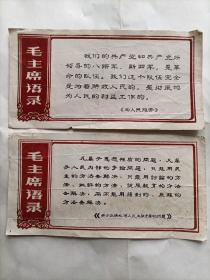 毛主席语录
我们的共产党和共产党所
领导的八路军、新四军，是革
命的队伍。我们这个队伍完全
是为着解放人民的，是彻底地
为人民的利益工作的。
《为人民服务》
毛主席语录
凡属于思想性质的问题，凡属
于人民内部的争论问题，只能用民
主的方法去解决，只能用讨论的方
法、批评的方法、说服教育的方法
去解决，而不能用强制的、压服的方
法去解决。
《关于正确处理人民内部矛盾的问题》